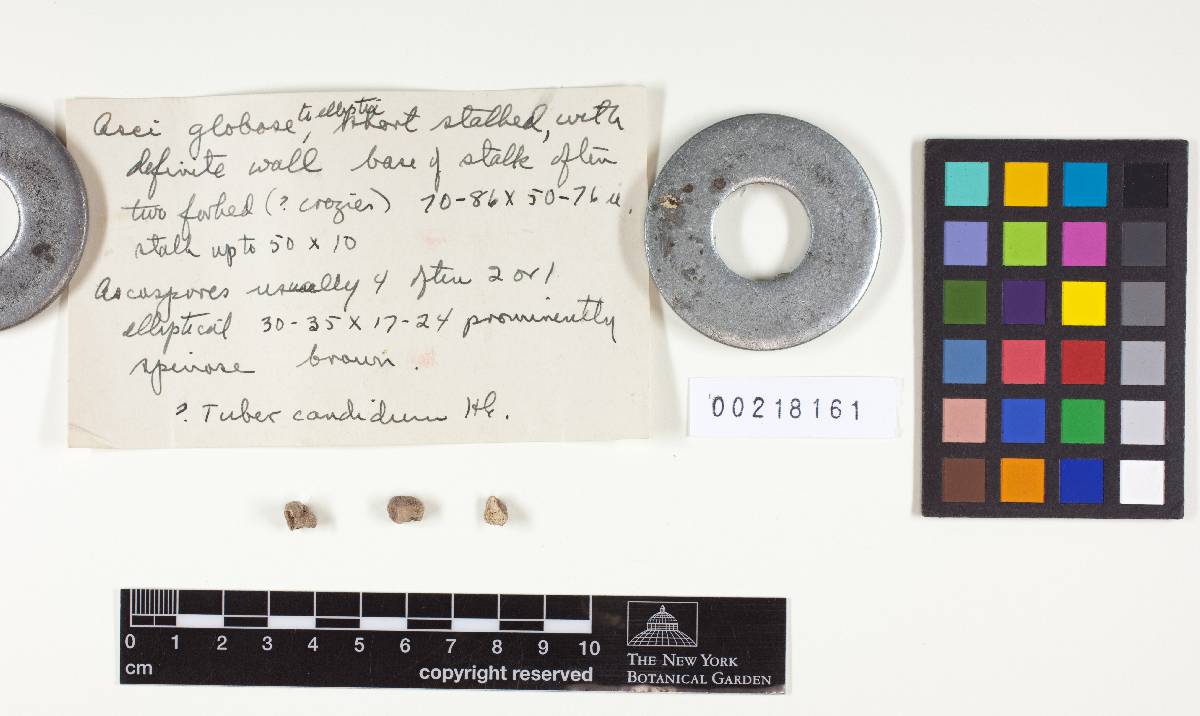 Asci globose, to elliptic short stalked, with
definite wall base of stalk often
two forked (? crozier) 70-86 x 50-76 u.
stalk up to 50 x 10
Ascospores usually 4 often 2 or 1
elliptical 30-35 x 17-24 prominently
spinose brown.
? Tuber candidum Hk.
00218161
0 1 2 3 4 5 6 7 8 9 10
cm
copyright reserved
THE NEW YORK
BOTANICAL GARDEN